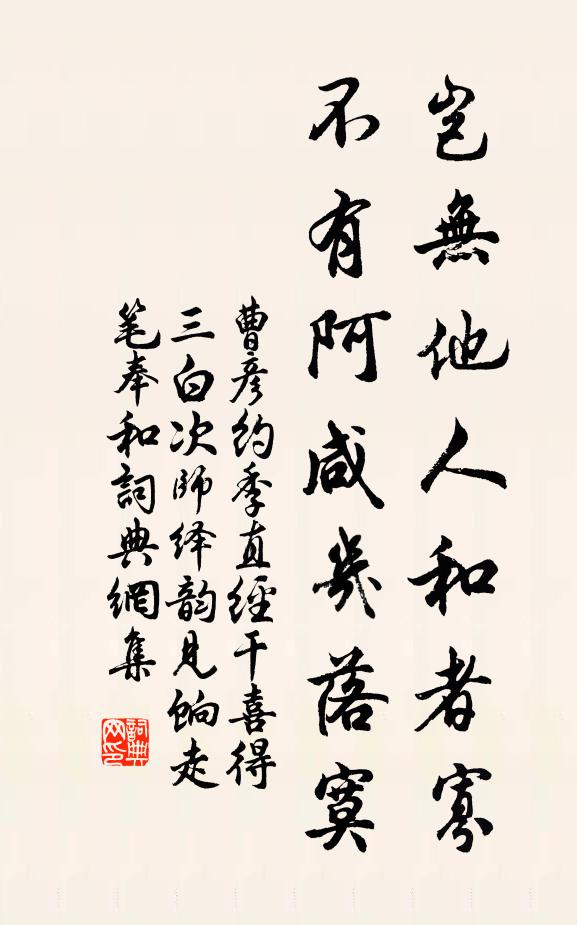 豈無他人和者寡
不有阿咸幾落寞
曹彦約季直經干喜得
三白次師绎韵見餉走
笔奉和詞典網集
詞典
网印